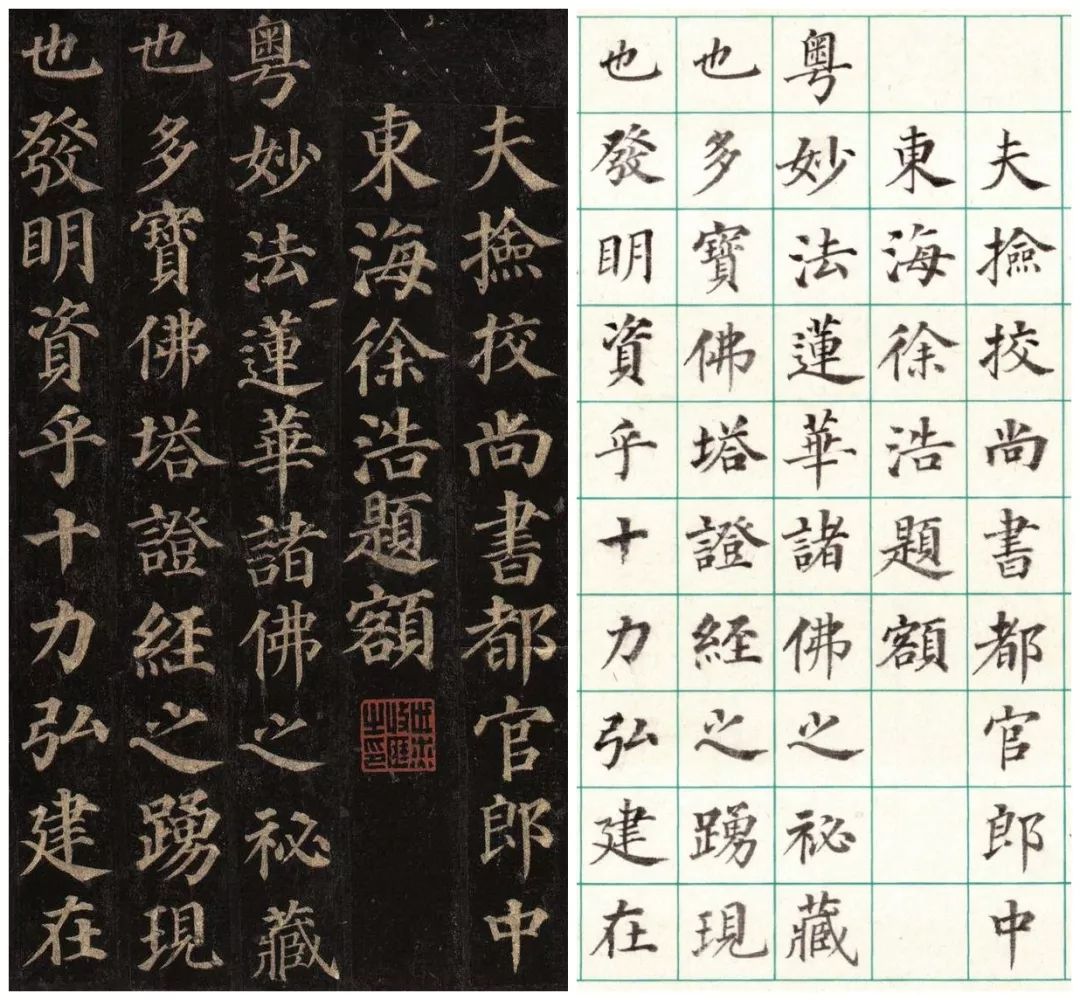 夫撿挍尚書都官郎中
東海徐浩題額
粤妙法蓮華諸佛之祕藏
也多寶佛塔證經之踴現
也發明資乎十力弘建在
夫撿挍尚書都官郎中
東海徐浩題額
粤妙法蓮華諸佛之祕藏
也多寶佛塔證經之踴現
也發明資乎十力弘建在